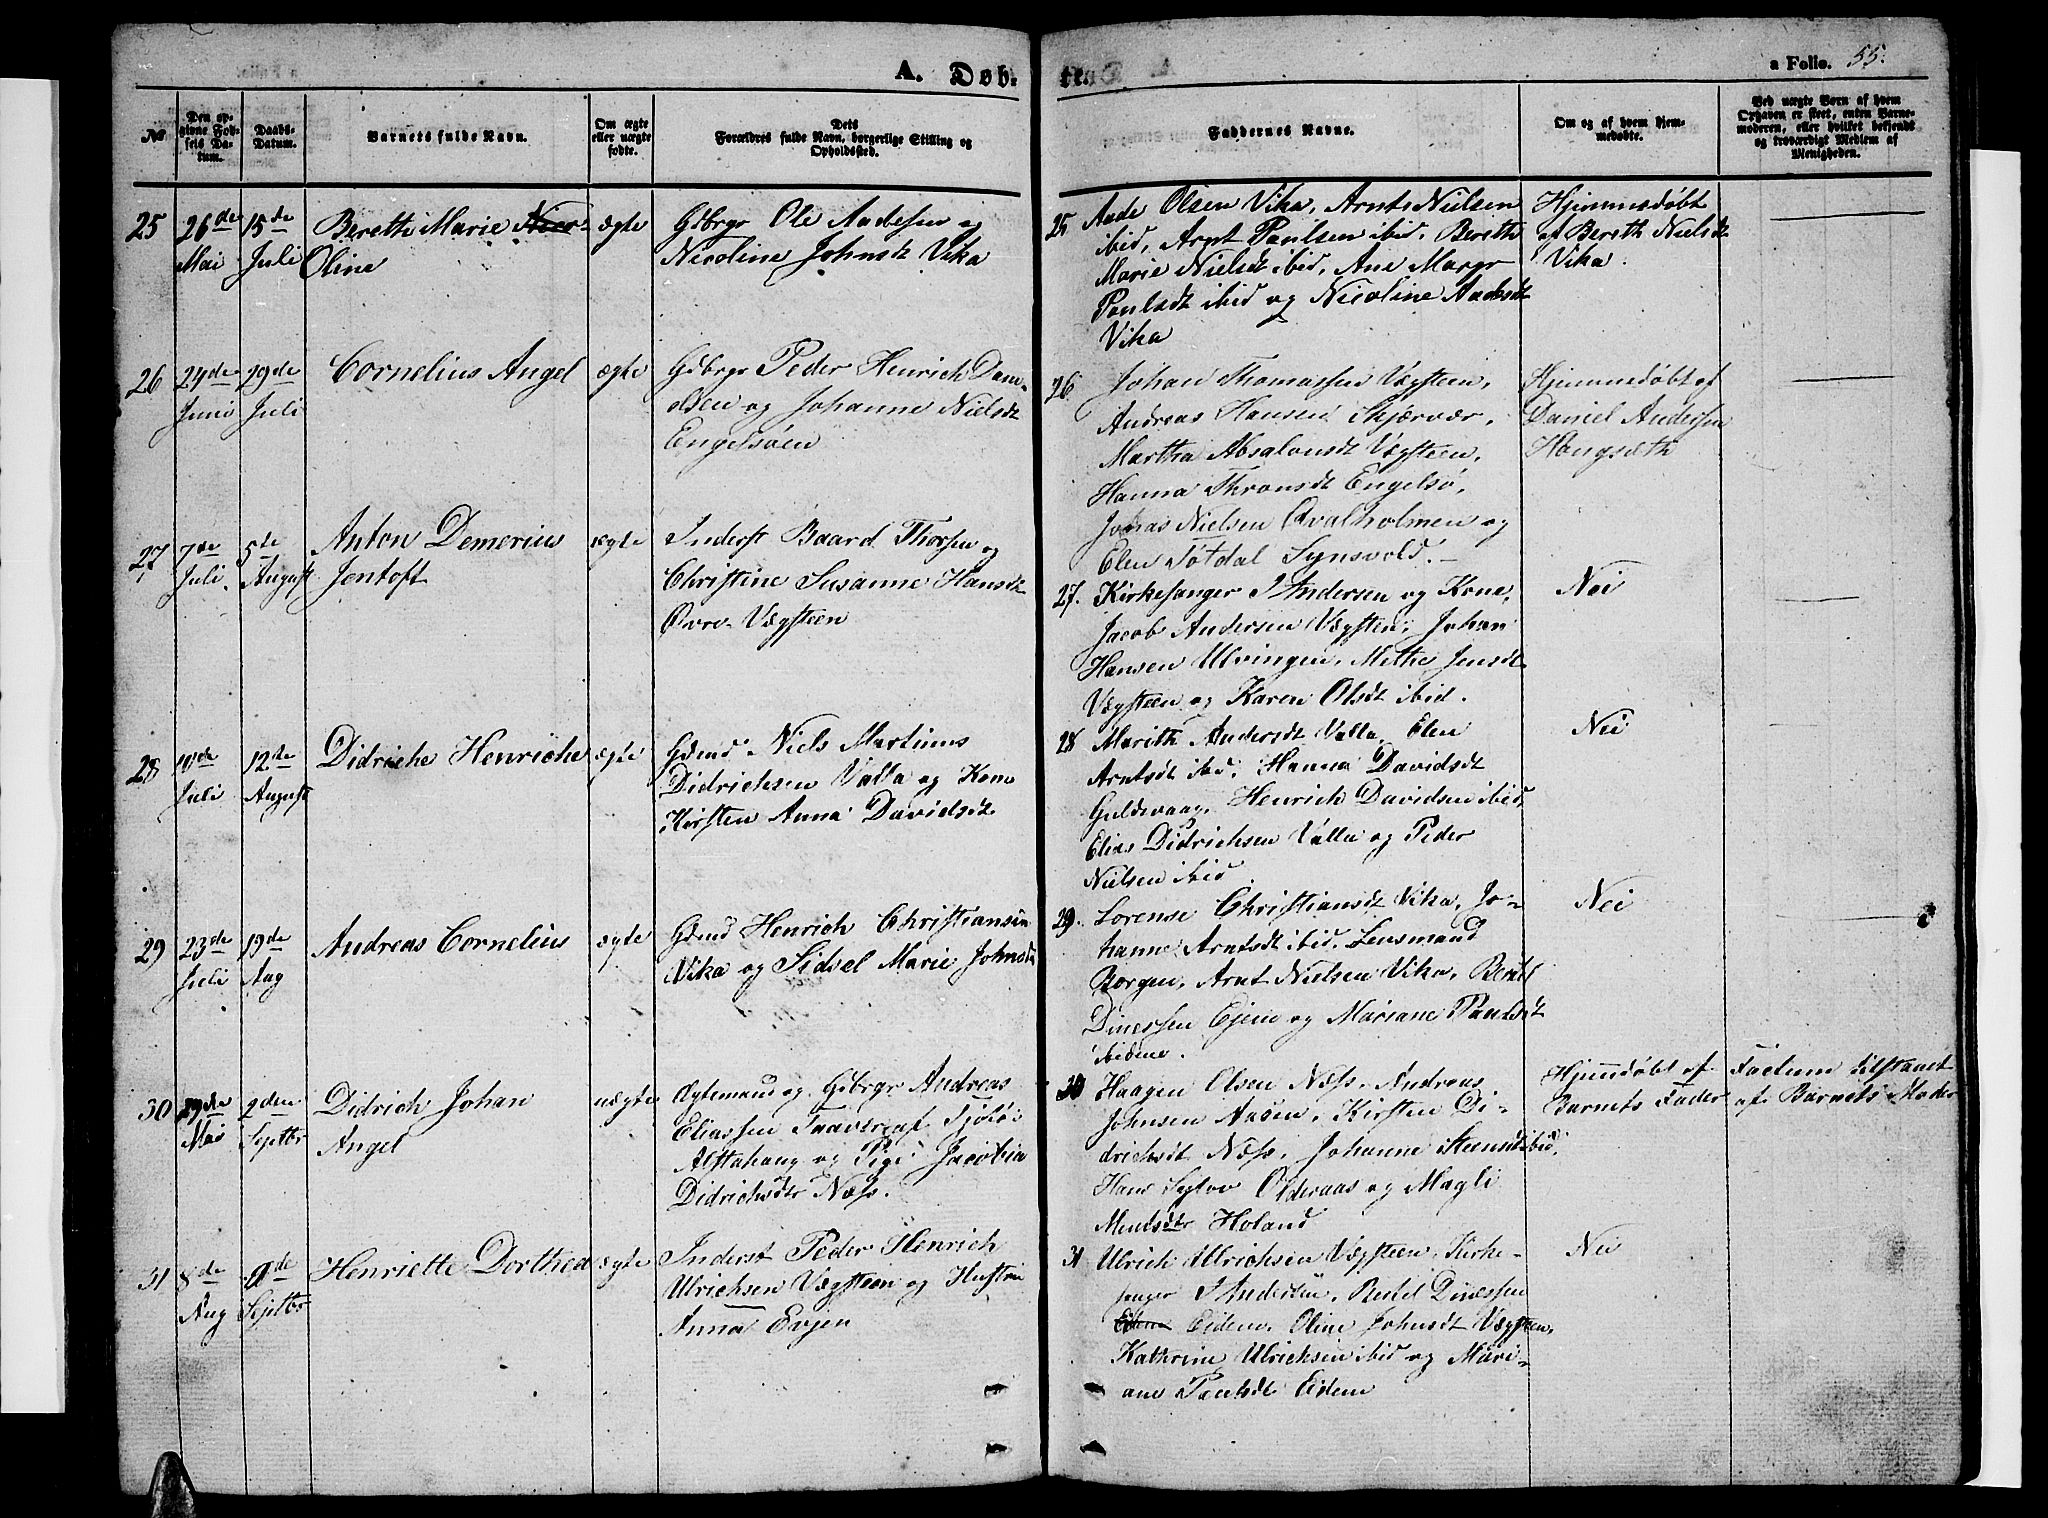 A. Døb-
a Folio. 55.
No
Den op-
givne Fød-
sels Da-
tum.
Daabs-
Datum.
Barnets fulde Navn.
Om ægte
eller uægte
fødte.
Dets
Forældres fulde Navn, borgerlige Stilling og
Opholdssted.
Faddernes Navne.
Om og af hvem hjem-
medøbte.
Ved uægte Børn af hvem
Opgaven er skeet, enten Barne-
moderen, eller hvilket bekjendt
og troværdigt Medlem af
Menigheden.
25
26de
Mai
15de
Juli
Bereth Marie
Oline
ægte
Gdbrgr Ole Andersen og
Nicoline Johnsdt Vika
25 Ande Olsen Vika, Arnt Nielsen
ibid, Arnt Paulsen ibid, Bereth
Marie Nielsdt ibid, Ane Margr
Paulsdt ibid og Nicoline Andersdt
Vika
Hjemmedøbt
af Bereth Nielsdt
Vika.
26
24de
Juni
29de
Juli
Cornelius Angel
ægte
Gdbrgr Peder Henrich Dani-
elsen og Johanne Nielsdt
Engelsøen
26 Johan Thomassen Vægsteen,
Andreas Hansen Skjærvær,
Martha Absalonsdt Vægsteen,
Hanna Thronsdt Engelsø,
Johas Nielsen Qvalholmen og
Elen Søtdal Synsvold.
Hjemmedøbt af
Daniel Andersen
Hongsæth
27
7de
Juli
5te
August
Anton Demerius
Jentoft
ægte
Inderst Baard Thorsen og
Christine Susanne Hansdt
Øvre Vægsteen
27. Kirkesanger J Andersen og Kone,
Jacob Andersen Vægsteen, Johan
Hansen Ulvingen, Methe Jensdt
Vægsteen og Karen Olsdt ibid.
Nei
28
10de
Juli
12de
August
Didriche Henriche
ægte
Gdmd Niels Martinus
Didrichsen Valla og Kone
Kirsten Anna Davidsdt
28 Marith Andersdt Valla, Elen
Arntsdt ibid, Hanna Davidsdt
Guldsvaag, Henrich Davidsen ibid,
Elias Didrichsen Valla og Peder
Nielsen ibid
Nei
29
23de
Juli
19de
Aug
Andreas Cornelius
ægte
Gdmd Henrich Christiansen
Vika og Sidsel Marie Johnsdt
29. Lorense Christiansdt Vika, Jo-
hanne Arntsdt ibid, Lensmand
Borgen, Arnt Nielsen Vika, Bertel
Dinessen Ejem og Mariane Paulsdt
ibidem.
Nei
30
29de
Mai
2den
Septbr
Didrich Johan
Angel
uægte
Ægtemand og Gdbrgr Andreas
Eliassen af Sjølø,
Alstahaug og Pige Jacobia
Didrichsdtr Næss.
30 Haagen Olsen Næss, Andreas
Johnsen Aasen, Kirsten Di-
drichsdt Næss, Johanne Steensdt ibid,
Hans Olderaas og Magli
Hjemdøbt af
Barnets Fader
Factum tilstaaet
af Barnets Moder
31
8de
Aug
9de
Septbr
Henriette Dorthea
ægte
Inderst Peder Henrich
Ulrichsen Vægsteen og Hustru
Anna Evjen
31 Ulrich Ulrichsen Vægsteen, Kirke-
sanger J Andersen, Bertel Dinessen
Eidem, Oline Johnsdt Vægsteen,
Kathrine Ulrichsen ibid og Mari-
ane Paulsdt Eidem
Nei